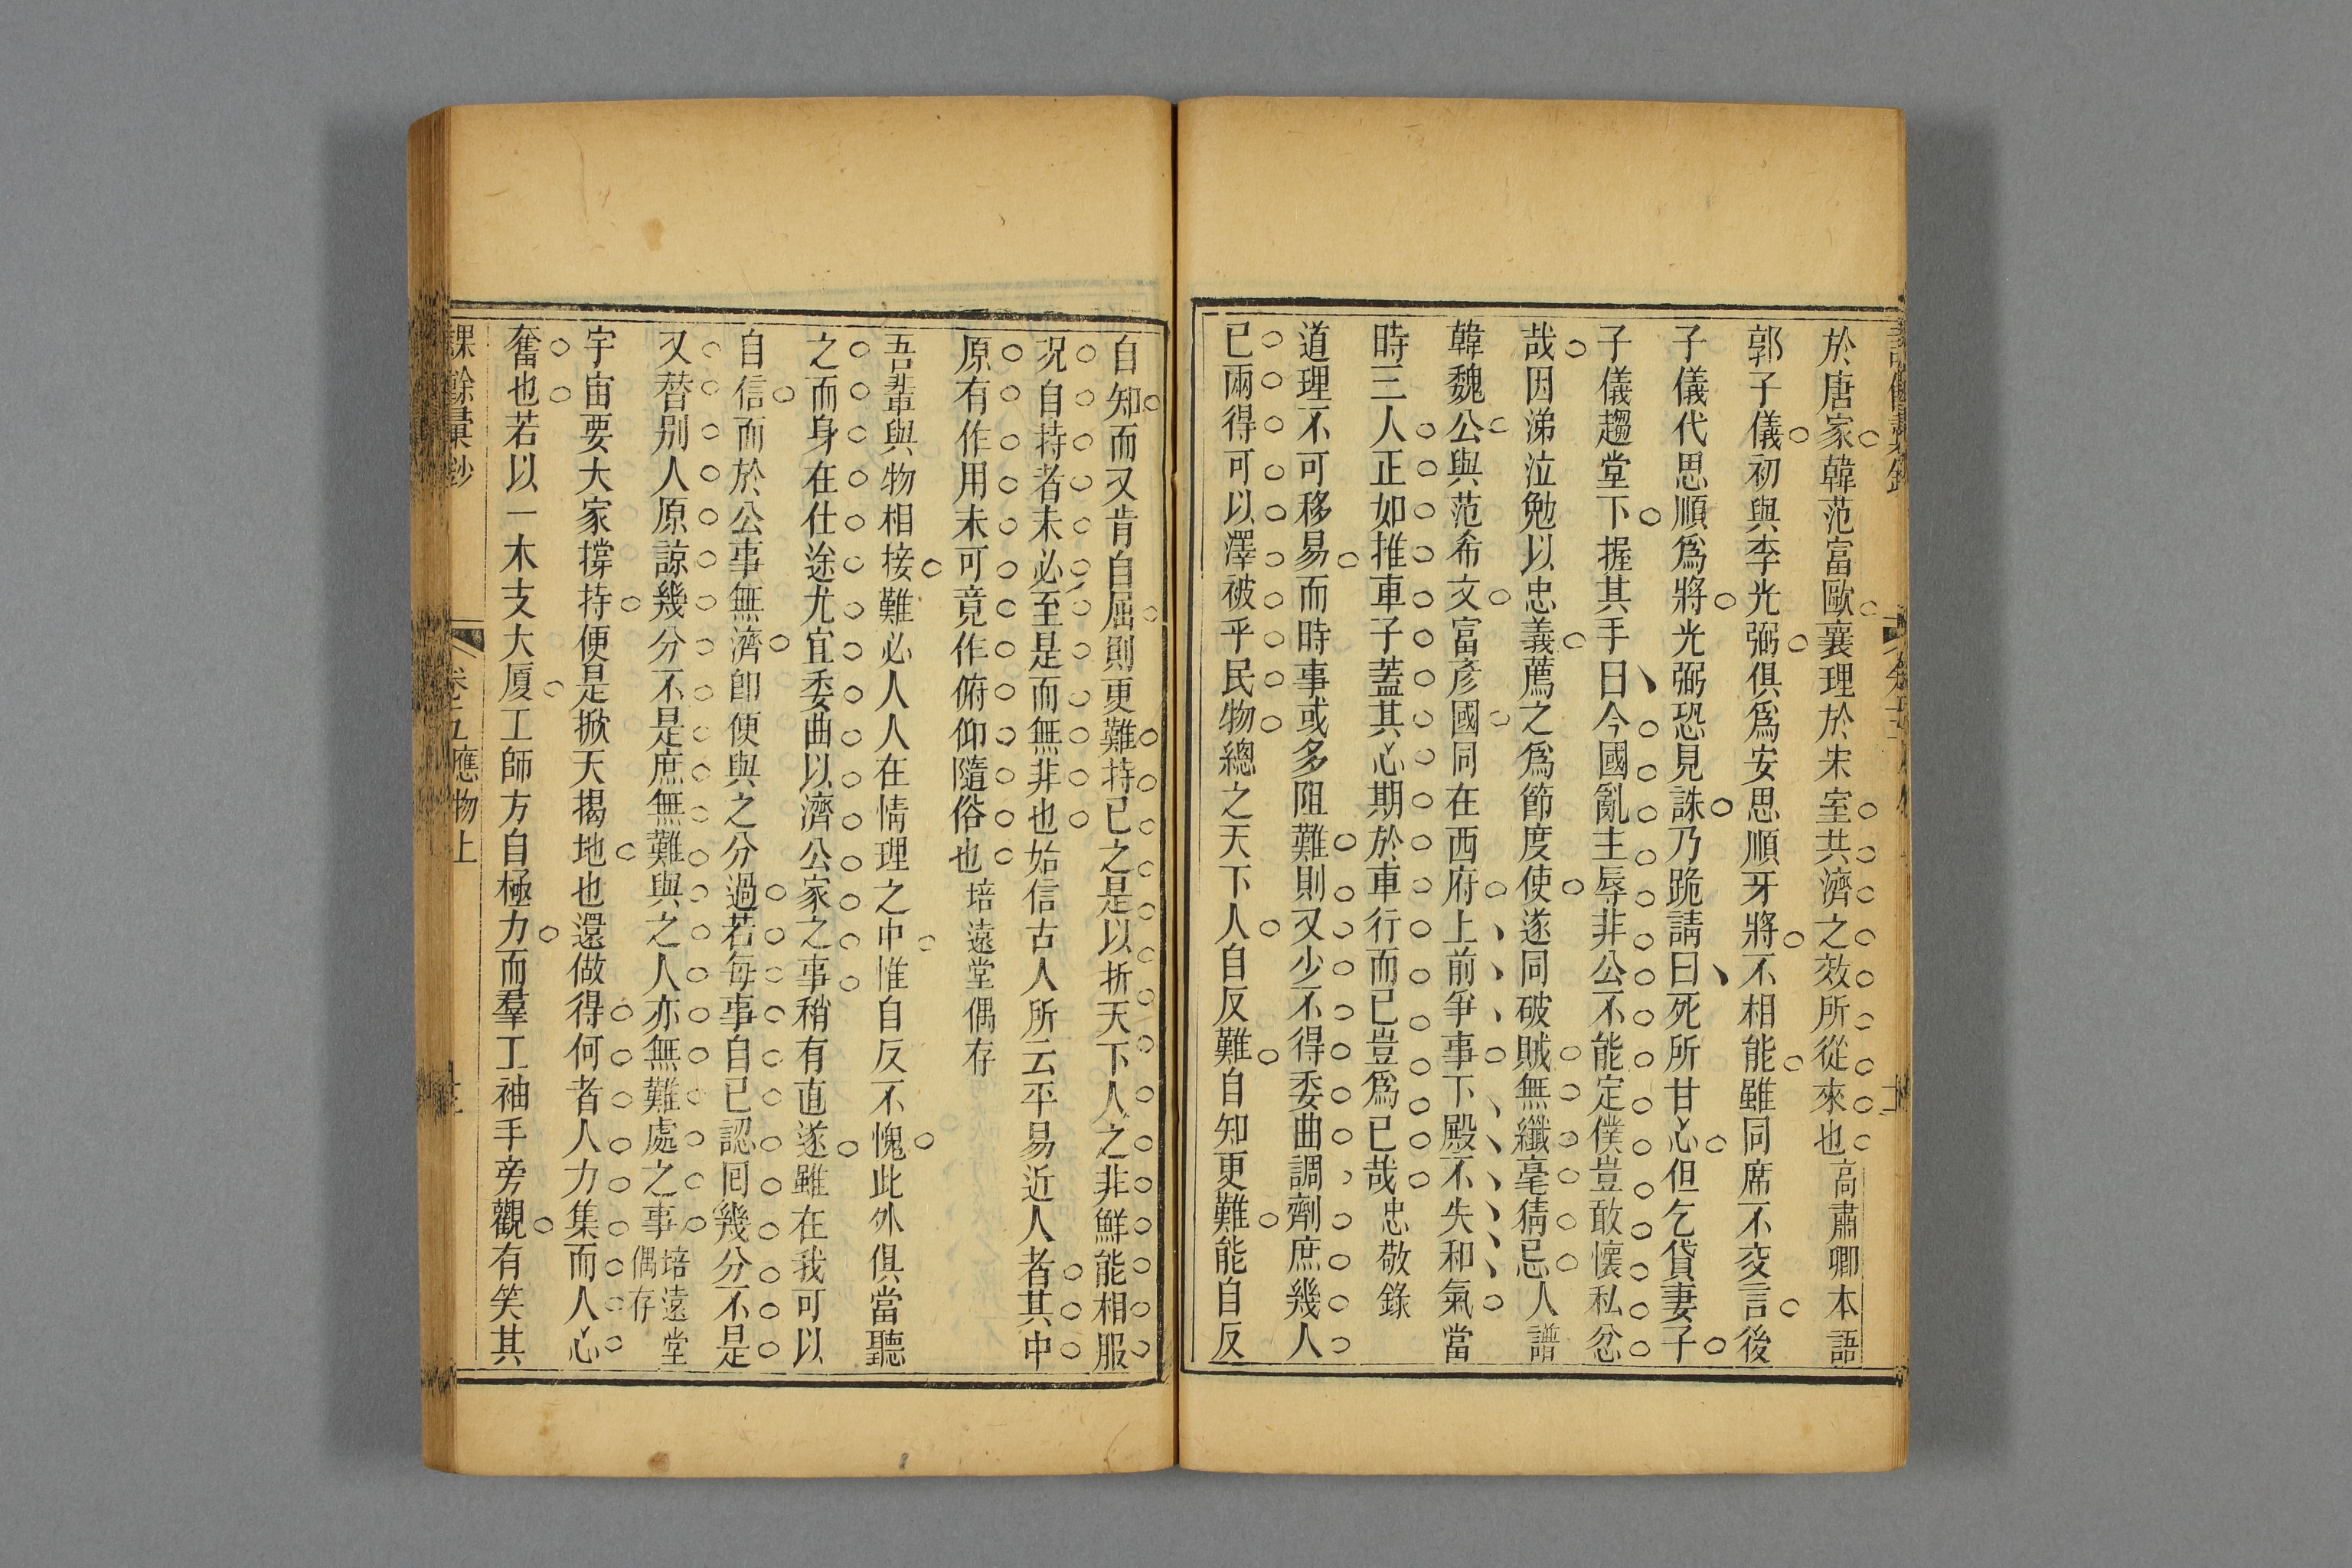 於唐家韓范富歐襄理於宋室共濟之效所從來也高肅卿本語
郭子儀初與李光弼俱爲安思順牙將不相能雖同席不交言後
子儀代思順爲將光弼恐見誅乃跪請曰死所甘心但乞貸妻子
子儀趨堂下握其手曰今國亂主辱非公不能定僕豈敢懷私忿
哉因涕泣勉以忠義薦之爲節度使遂同破賊無纖毫猜忌人譜
韓魏公與范希文富彥國同在西府上前爭事下殿不失和氣當
時三人正如推車子蓋其心期於車行而已豈爲已哉忠敬錄
道理不可移易而時事或多阻難則又少不得委曲調劑庶幾人
已兩得可以澤被乎民物總之天下人自反難自知更難能自反
自知而又肯自屈則更難持已之是以折天下人之非鮮能相服
况自持者未必至是而無非也始信古人所云平易近人者其中
原有作用未可竟作俯仰隨俗也培遠堂偶存
吾輩與物相接難必人人在情理之中惟自反不愧此外俱當聽
之而身在仕途尤宜委曲以濟公家之事稍有直遂雖在我可以
自信而於公事無濟卽便與之分過若每事自已認囘幾分不是
又替别人原諒幾分不是庶無難與之人亦無難處之事培遠堂偶存
宇宙要大家撐持便是掀天揭地也還做得何者人力集而人心
奮也若以一木支大厦工師方自極力而羣工袖手旁觀有笑其
課餘彙鈔 卷五應物上